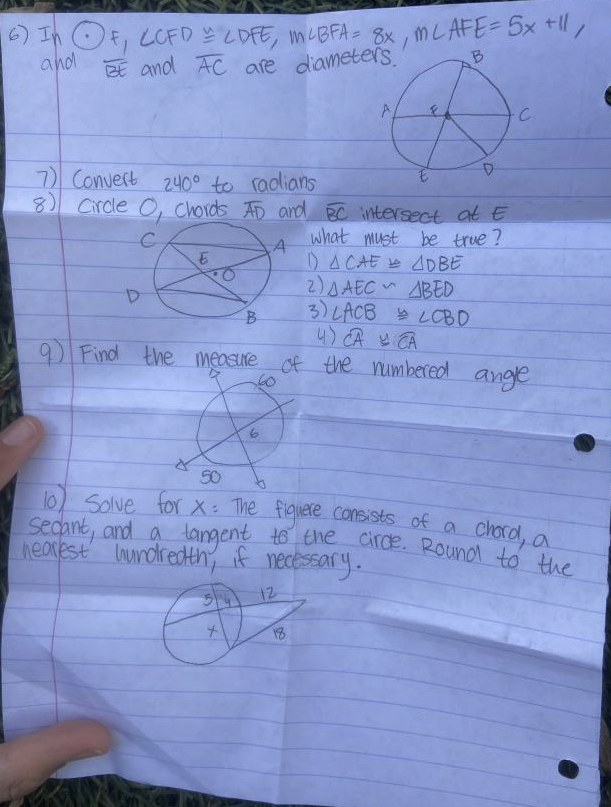 6) In ⊙ F, ∠CFD ≅ ∠DFE, m∠BFA = 8x, m∠AFE = 5x + 11,
and BE and AC are diameters.
B
A F C
E D
7) Convert 240° to radians
8) Circle O, chords AD and BC intersect at E
what must be true?
C A
E O
D B
1) △CAE ≅ △DBE
2) △AEC ~ △BED
3) ∠ACB ≅ ∠CBD
4) CA ≅ CA
9) Find the measure of the numbered angle
60
6
50
10) Solve for x: The figuere consists of a chord, a
secant, and a tangent to the circle. Round to the
nearest hundredth, if necessary.
5 4 12
x 18